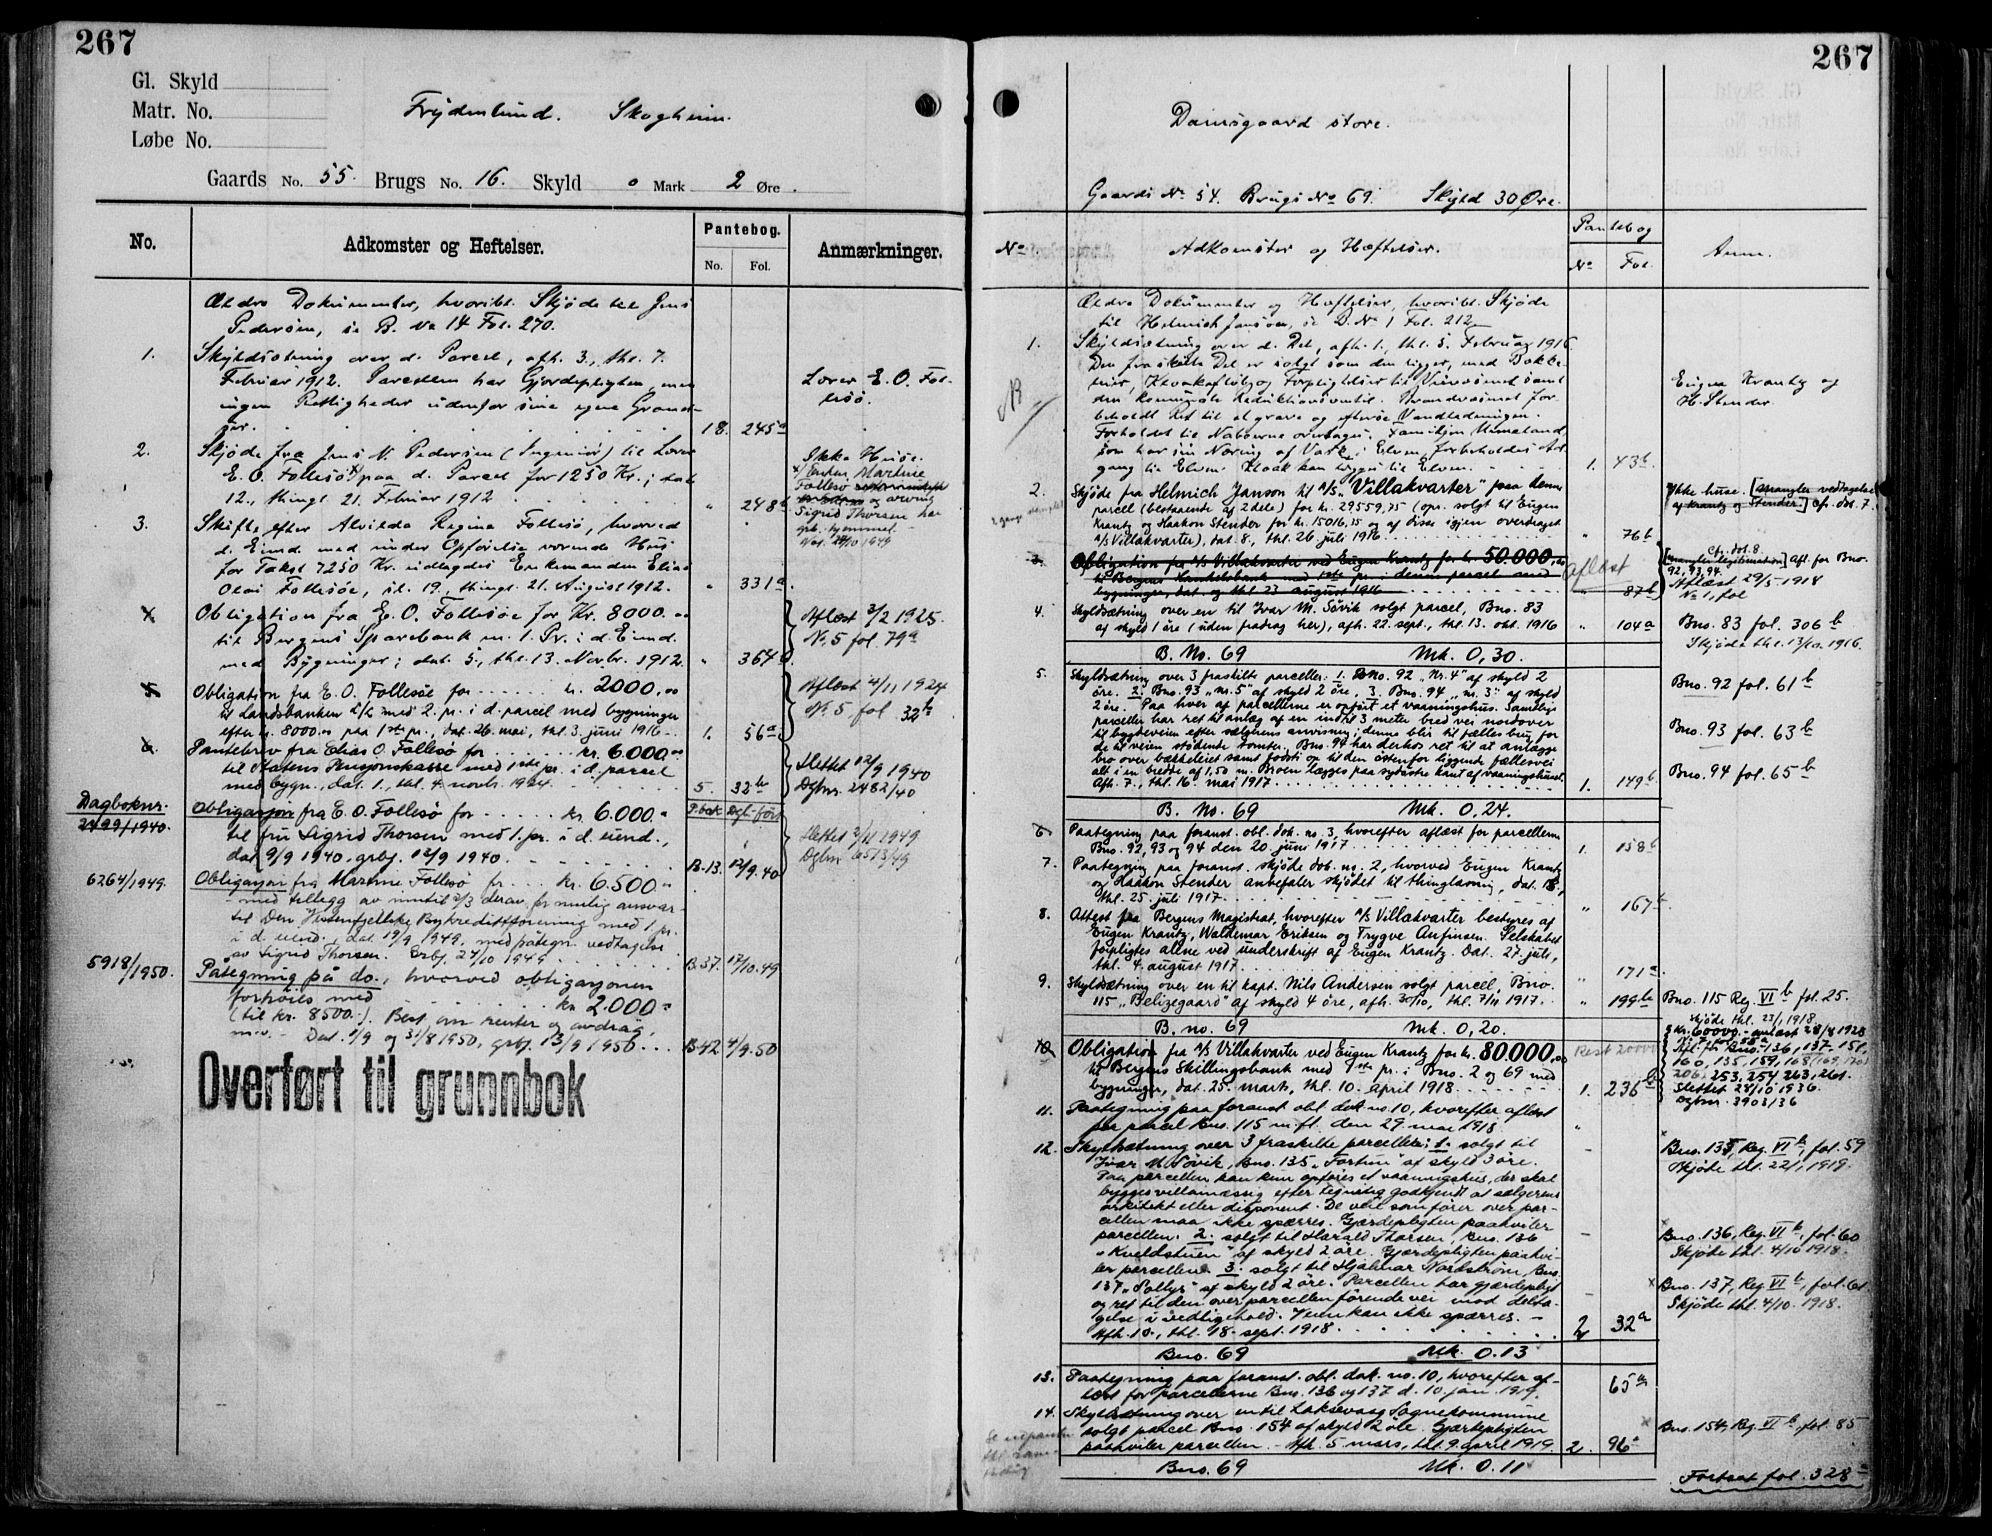 267
Gl. Skyld
Matr. No.
Løbe No.
Frydenlund. Skogheim.
Gaards No. 55. Brugs No. 16. Skyld 0 Mark 2 Øre.
No.
Adkomster og Heftelser.
Pantebog.
No. Fol.
Anmærkninger.
Ældre Dokumenter, hvoribl. Skjøde til Jens
Pedersen, se B. No 14 Fol. 270.
1. Skyldsætning over d. Parcel, afh. 3., thl. 7.
Februar 1912. Parcellen har Gjerdepligten, men
ingen Rettigheder udenfor sine egne Grænd-
ser. 18. 245a
Lærer E. O. Fol-
lesö.
2. Skjøde fra Jens N. Pedersen (Ingeniør) til Lærer
E. O. Follesö x) paa d. Parcel for 1250 Kr.; dat.
12., thingl. 21. Februar 1912 " 248b
Ikke Huse.
x) Enken Martine
Follesö
Sigrid Thorsen har
grb. hjemmel.
24/10 1949
3. Skifte efter Alvilda Regine Follesö, hvorved
d. Eiend. med under Opförelse værende Hus
for Takst 7250 Kr. udlagdes Enkemanden Elias
Olai Follesöe, sl. 19., thingl. 21. August 1912. " 331a
4. Obligation fra E. O. Follesöe for Kr. 8000.00
til Bergens Sparebank m. 1. Pr. i d. Eiend.
med Bygninger; dat. 5., thl. 13. Novbr. 1912. " 364
Aflæst 3/2 1925.
No. 5 fol. 79a
5. Obligation fra E. O. Follesöe for kr. 2000,00
til Landsbanken A/S med 2. pr. i d. parcel med bygninger
efter kr. 8000.00 paa 1ste pr., dat. 26. mai, thl. 3. juni 1916 1. 56a
Aflæst 4/11 1924
No. 5 fol. 32b
6. Pantebrev fra Elias O. Follesö for kr. 6.000.00
til Statens Pensjonskasse med 1ste pr. i d. parcel
med bygn., dat. 1., thl. 4. novb. 1924. 5. 32b
Slettet 12/9 1940
Dgbnr. 2482/40
Dagboknr.
2499/1940.
P.bok Dgl-ført
Obligasjon fra E. O. Follesö for kr. 6.000.-
til fru Sigrid Thorsen med 1. pr. i d. eiend.,
dat. 9/9 1940, grbf. 12/9 1940. B.13. 12/9.40
Slettet 2/11 1949
Dgbnr. 6513/49
6264/1949. Obligasjon fra Martine Follesö for kr. 6.500.-
- med tillegg av inntil 2/3 derav for mulig ansvar -
til Den Vestenfjellske Bykredittforening med 1 pr.
i d. eiend. dat. 19/9 1949, med påtegn. vedtagelse
av Sigrid Thorsen. Grbf. 24/10 1949 B.37. 17/10.49
5918/1950. Påtegning på do., hvorved obligasjonen
forhöies med kr 2.000.-
(til kr. 8500.-). Best. om renter og avdrag,
m.v. - Dat. 1/9 og 31/8 1950, grbf. 13/9 1950... B.42 4/9.50
Overført til grunnbok
267
Damsgaard store.
Gaards No 54. Brugs No 69. Skyld 30 Øre.
No
Adkomster og Hæftelser.
Pantebog
No Fol.
Anm.
Ældre Dokumenter og Hæftelser, hvoribl. Skjøde
til Helmich Janson, se B. No 1 Fol. 212
1. Skyldsætning over d. Del, afh. 1., thl. 5. Februar 1916.
Den fraskilte Del er solgt som den ligger, med Bække-
Forholdet til Naboerne overtages.
gang til Elven. Kloak kan lægges til Elven. 1. 43b.
NB
Eugen Krantz og
H. Stender.
2. Skjøde fra Helmich Janson til A/S "Villakvarter" paa denne
parcel (bestaaende af 2 dele) for kr. 29559,75 (opr. solgt til Eugen
Krantz og Haakon Stender for kr. 15016,75 og af disse igjen overdraget
A/S Villakvarter), dat. 8., thl. 26. juli 1916 " 76b
Ikke huse. [Mangler vedtagelse
af Krantz og Stender.] Cfr. dok. 7.
3. Obligation fra A/S Villakvarter ved Eugen Krantz for kr. 50.000,00
til Bergens Handelsbank med 1ste pr. i denne parcel med
bygninger, dat. og thl. 23 august 1916 " 87b
Aflæst
Cfr. dok. 8.
[Mangler legitimation] Afl. for Bno.
92, 93, 94.
Aflæst 29/5 1918
No 1, fol
4. Skyldsætning over en til Ivar M. Søvik solgt parcel, Bno. 83
af skyld 1 øre (uden fradrag her), afh. 22. sept., thl. 13. okt. 1916 " 104a
Bno. 83 fol. 306b
Skjøde thl. 13/10 1916.
B. No. 69 Mk. 0,30.
5. Skyldsætning over 3 fraskilte parceller: 1. Bno. 92 "Nr. 4" af skyld 2
öre. 2. Bno. 93 "nr. 5" af skyld 2 öre, 3. Bno. 94 "nr. 3" af skyld
2 öre. Paa hver af parcellerne er opfört et vaaningshus. Samtlige
parceller har ret til anlæg af en indtil 3 meter bred vei nordover
til bygdeveien efter sælgerens anvisning; denne blir til fælles brug for
de til veien stödende tomter. Bno. 94 har derhos ret til at anlægge
bro over bækkeleiet samt fodsti og til den östenfor liggende fællesvei
alt i en bredde af 1,50 m. Broen lægges paa sydöstre kant af vaaningshuset.
Afh. 7., thl. 16. mai 1917 1. 149b
Bno. 92 fol. 61b
Bno. 93 fol. 63b
Bno. 94 fol. 65b
B. No. 69 Mk. 0,24.
6. Paategning paa foranst. obl. dok. no. 3, hvorefter aflæst for parcellerne
Bno. 92, 93 og 94 den 20. juni 1917 1. 158b
7. Paategning paa foranst. skjøde dok. no. 2, hvorved Eugen Krantz
og Haakon Stender anbefaler skjødet til thinglæsning, dat. 18.,
thl. 25. juli 1917. " 167b
8. Attest fra Bergens Magistrat, hvorefter A/S Villakvarter bestyres af
Eugen Krantz, Waldemar Eriksen og Trygve Anfinsen. Selskabet
forpligtes alene ved underskrift af Eugen Krantz. Dat. 27. juli,
thl. 4. august 1917 " 171a.
9. Skyldsætning over en til kapt. Nils Andersen solgt parcel, Bno.
115 "Belizegaard" af skyld 4 öre, afh. 30/10, thl. 7/11 1917. " 199b
Bno. 115 Reg. VI b fol. 25.
Skjöde thl. 23/1 1918.
B. no. 69 Mk. 0,20.
10. Obligation fra A/S Villakvarter ved Eugen Krantz for kr. 80.000,00
til Bergens Skillingsbank med 1ste pr. i Bno. 2 og 69 med
bygninger, dat. 25. mars, thl. 10. april 1918 1. 236b
Rest 20000
Kr. 60000.- avlæst 28/8 1928
Afl. for Bno. 136, 137, 151,
160, 135, 159, 168, 169, 170,
206, 253, 254, 263, 261.
Slettet 28/10 1936.
Dgbnr. 3903/36
11. Paategning paa foranst. obl. dok. no. 10, hvorefter aflæst
for parcel Bno. 115 m.fl. den 29. mai 1918. "
12. Skyldsætning over 3 fraskilte parceller: 1. solgt til
Ivar M. Søvik, Bno. 135 "Fortun" af skyld 3 öre.
Paa parcellen kan kun opföres et vaaningshus, der skal
bygges villamæssig efter tegning godkjendt af sælgerens
arkitekt eller disponent. De veie som fører over par-
cellen maa ikke spærres. Gjærdepligten paahviler
parcellen. 2. solgt til Harald Thorsen, Bno. 136
"Kveldstuen" af skyld 2 öre. Gjærdepligten paahvi-
ler parcellen. 3. solgt til Hjalmar Nordström, Bno.
137 "Solbys" af skyld 2 öre. Parcellen har gjærdepligt
og ret til den over parcellen förende vei mod delta-
gelse i vedligehold. Veien kan ikke spærres. -
Afh. 10., thl. 18. sept. 1918. 2 32a
Bno. 135, Reg. VI b, fol. 59
Skjöde thl. 22/1 1919.
Bno. 136, Reg. VI b, fol. 60
Skjöde thl. 4/10 1918.
Bno. 137, Reg. VI b, fol. 61
Skjöde thl. 4/10. 1918.
Bno. 69 Mk. 0.13
13. Paategning paa foranst. obl. dok. no. 10, hvorefter af-
læst for parcellerne Bno. 136 og 137 d. 10. jan. 1919. 65a
14. Skyldsætning over en til Laksevaag Sognekommune
solgt parcel Bno. 154 af skyld 2 öre. Gjærdepligten
paahviler parcellen. - Afh. 5. mars, thl. 9. april 1919. 2. 96a
Bno. 154, Reg. VI b, fol. 85
Bno. 69 Mk. 0.11
Fortsat fol. 328